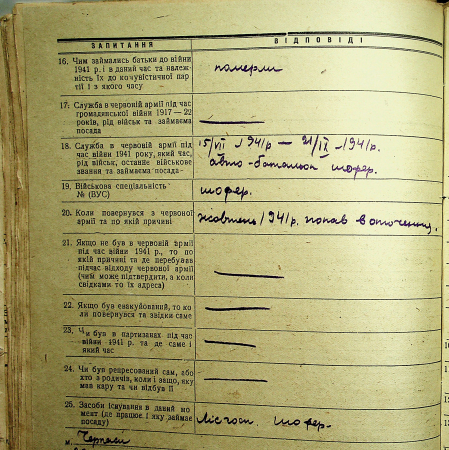 ЗАПИТАННЯ ВІДПОВІДІ
16. Чим займались батьки до війни
1941 р. і в даний час та належ-
ність їх до комуністичної пар-
тії і з якого часу
померли
17. Служба в червоній армії під час
громадянської війни 1917 — 22
років, рід військ та займаєма
посада
18. Служба в червоній армії під
час війни 1941 року, який час,
рід військ, останнє військове
звання та займаєма посада
15/VII 1941р — 21/IX 1941р.
авто-баталіон шофер.
19. Військова спеціальність
№ (ВУС)
шофер.
20. Коли повернувся з червоної
армії та по якій причині
жовтень/1941р. попав в оточення.
21. Якщо не був в червоній армії
під час війни 1941 р., то по
якій причині та де перебував
підчас відходу червоної армії
(чим може підтвердити, з коли
свідками то їх адреса)
22. Якщо був евакуйований, то ко-
ли повернувся та звідки саме
23. Чи був в партизанах під час
війни 1941 р. та де саме і
який час
24. Чи був репресований сам, або
хто з родичів, коли і защо, яку
мав кару та чи відбув її
25. Засоби існування в даний мо-
мент (де працює і яку займає
посаду)
шофер.
м. Черкаси